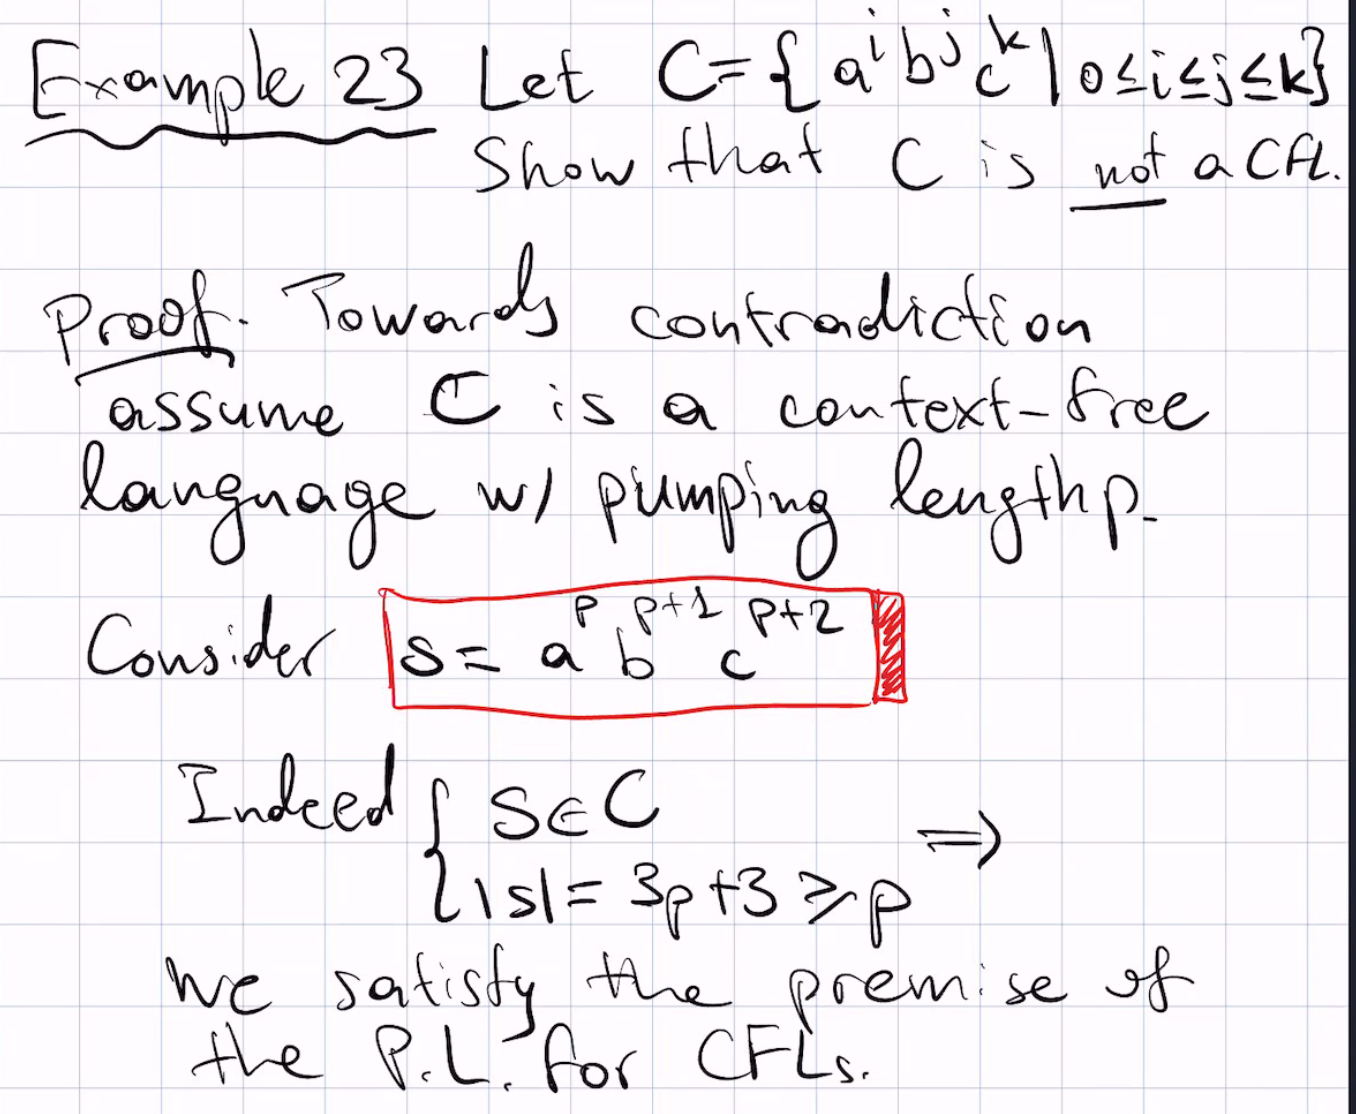 Example 23 Let C={aⁱbʲcᵏ | 0≤i≤j≤k}
Show that C is not a CFL.
Proof. Towards contradiction
assume C is a context-free
language w/ pumping length p.
Consider s= aᵖ bᵖ⁺¹ cᵖ⁺²
Indeed { S∈C
|s|= 3p+3 ≥ p ⟹
we satisfy the premise of
the P.L. for CFLs.